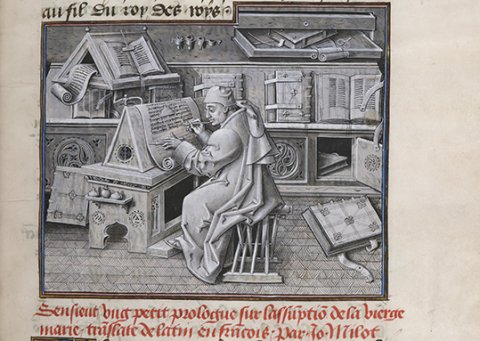 au fil du roy des roys
Sensieut vng petit prologue sur lassuption de la vierge
marie translate de latin en francois par Jo Milot